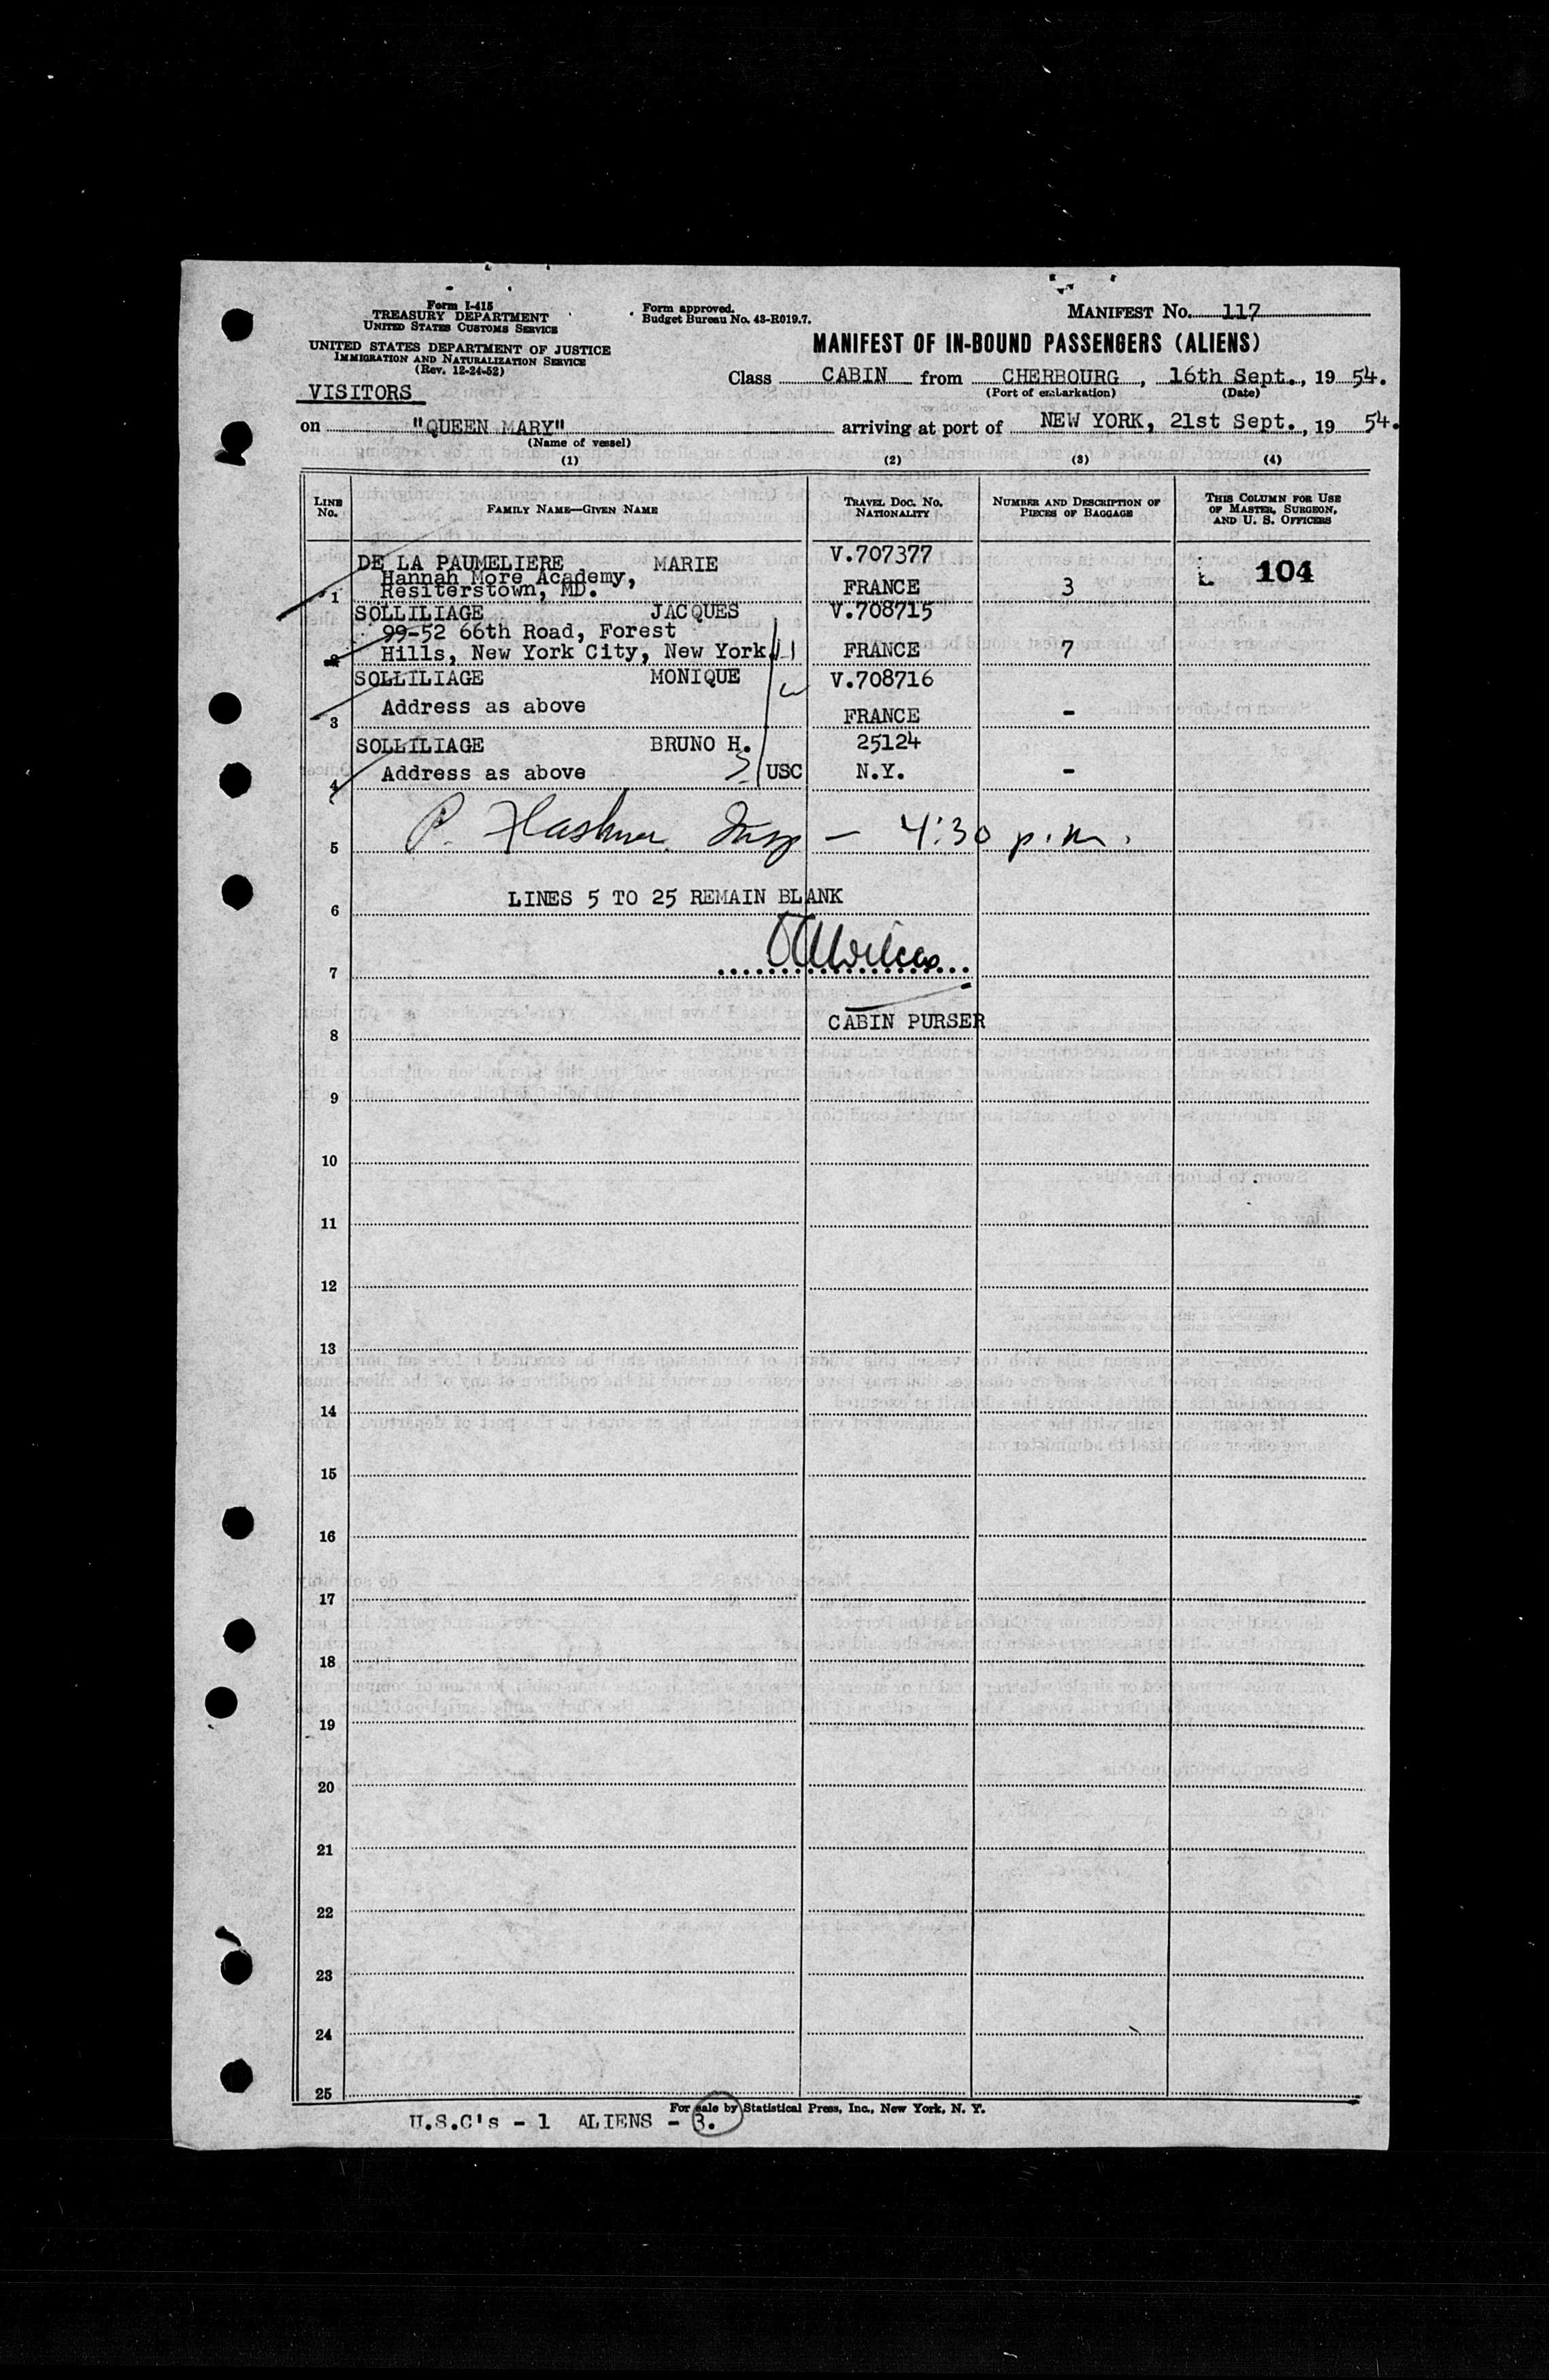 Form I-415
TREASURY DEPARTMENT
UNITED STATES CUSTOMS SERVICE
UNITED STATES DEPARTMENT OF JUSTICE
IMMIGRATION AND NATURALIZATION SERVICE
(Rev. 12-24-52)
Form approved.
Budget Bureau No. 43-R019.7.
MANIFEST No. 117
MANIFEST OF IN-BOUND PASSENGERS (ALIENS)
Class CABIN from CHERBOURG, 16th Sept., 19 54.
(Port of embarkation) (Date)
VISITORS
on "QUEEN MARY" arriving at port of NEW YORK, 21st Sept., 19 54.
(Name of vessel)
(1) (2) (3) (4)
LINE No. FAMILY NAME—GIVEN NAME TRAVEL DOC. NO. NATIONALITY NUMBER AND DESCRIPTION OF PIECES OF BAGGAGE THIS COLUMN FOR USE OF MASTER, SURGEON, AND U. S. OFFICERS
DE LA PAUMELIERE MARIE V.707377
Hannah More Academy, 104
1 Resiterstown, MD. FRANCE 3
SOLLILIAGE JACQUES V.708715
99-52 66th Road, Forest
2 Hills, New York City, New York. FRANCE 7
SOLLILIAGE MONIQUE V.708716
Address as above
3 FRANCE -
SOLLILIAGE BRUNO H. 25124
4 Address as above USC N.Y. -
5 P. Insp — 4:30 p.m.
6 LINES 5 TO 25 REMAIN BLANK
7
8 CABIN PURSER
9
10
11
12
13
14
15
16
17
18
19
20
21
22
23
24
25
For sale by Statistical Press, Inc., New York, N. Y.
U.S.C's - 1 ALIENS - 3.